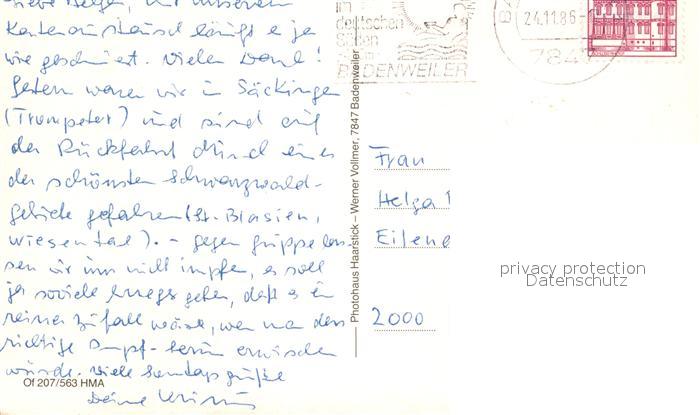 Liebe Helga, mit unserem
Kartenaustausch klappt es ja
wie geschmiert. Vielen Dank!
Gestern waren wir in Säckingen
(Trompeter) und sind auf
der Rückfahrt durch eines
der schönsten Schwarzwald-
gebiete gefahren (St. Blasien,
Wiesental). - Gegen Grippe las-
sen wir uns nicht impfen, es soll
ja soviele Erreger geben, daß es ein
reiner Zufall wäre, wenn man den
richtige Impf- erwischen
würde. Viele Sonntagsgrüße
Deine
Of 207/563 HMA
Photohaus Haarstick – Werner Vollmer, 7847 Badenweiler
im
deutschen
Süden
BADENWEILER
24.11.86-
784
Frau
Helga
Eilene
2000
privacy protection
Datenschutz